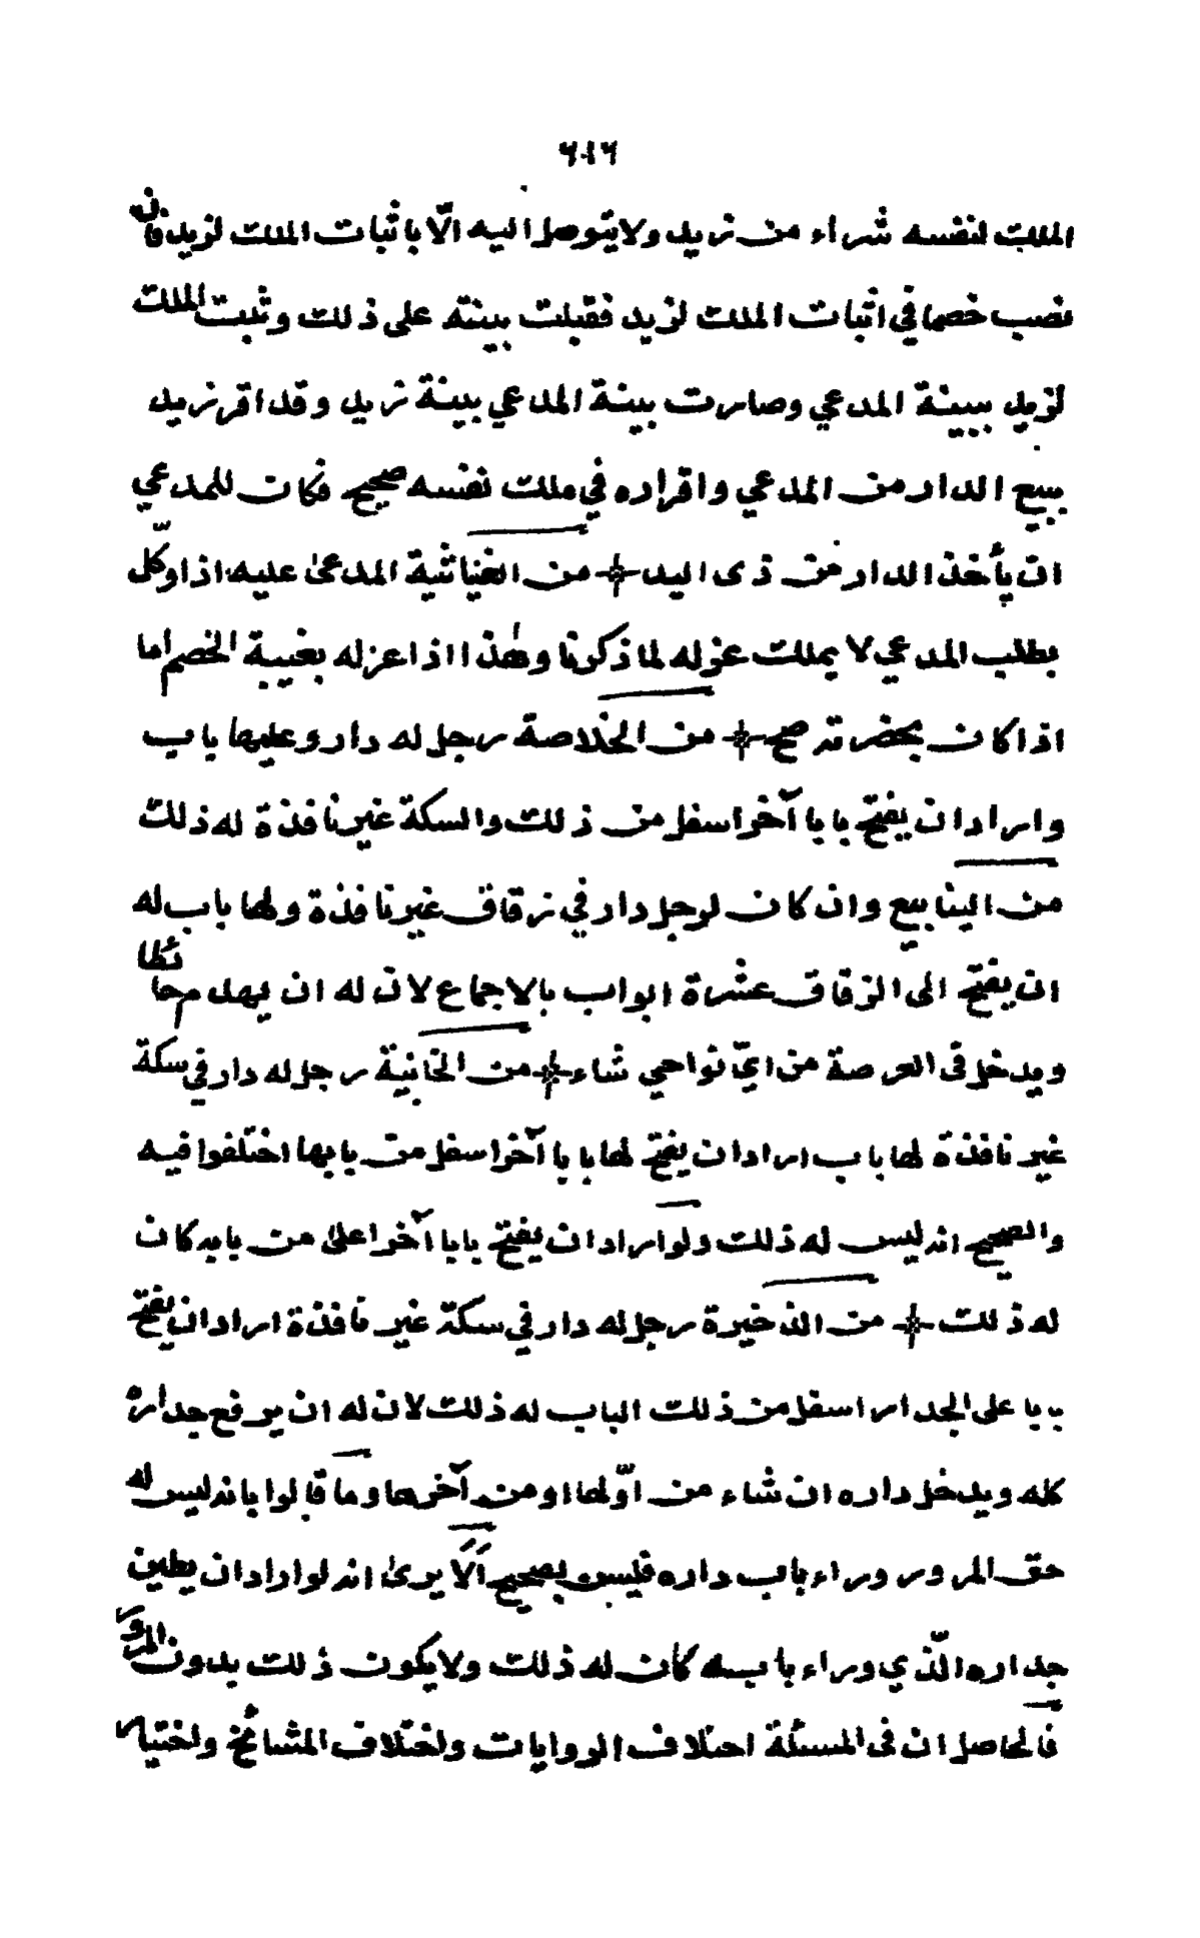 ٦١٦
الملك لنفسه شراء من زيد ولا يتوصل اليه الّا باثبات الملك لزيد فان
نصب خصما في اثبات الملك لزيد فقبلت بينته على ذلك وثبت الملك
لزيد ببينة المدعي وصارت بينة المدعي بينة زيد وقد اقر زيد
ببيع الدار من المدعي واقراره في ملك نفسه صحيح فكان للمدعي
ان يأخذ الدار من ذى اليد من الغياثية المدعىٰ عليه اذا وكّل
بطلب المدعي لا يملك عزله لما ذكرنا وهٰذا اذا عزله بغيبة الخصم اما
اذا كان بحضرته صح من الخلاصة رجل له دار وعليها باب
واراد ان يفتح بابا آخر اسفل من ذلك والسكة غير نافذة له ذلك
من الينابيع وان كان لرجل دار في زقاق غير نافذة ولها باب له
ان يفتح الى الزقاق عشرة ابواب بالاجماع لان له ان يهدم حائطا
ويدخل فى العرصة من ايّ نواحي شاء من الخانية رجل له دار في سكة
غير نافذة لها باب اراد ان يفتح لها بابا آخر اسفل من بابها اختلفوا فيه
والصحيح انه ليس له ذلك ولو اراد ان يفتح بابا آخر اعلىٰ من بابه كان
له ذلك من الذخيرة رجل له دار في سكة غير نافذة اراد ان يفتح
بابا على الجدار اسفل من ذلك الباب له ذلك لان له ان يرفع جداره
كله ويدخل داره ان شاء من اوّلها او من آخرها وما قالوا بانه ليس له
حق المرور وراء باب داره فليس بصحيح اَلَا يرىٰ انه لو اراد ان يطين
جداره الّذي وراء بابه كان له ذلك ولا يكون ذلك بدون المرور
فالحاصل ان فى المسئلة اختلاف الروايات واختلاف المشائخ واختيار